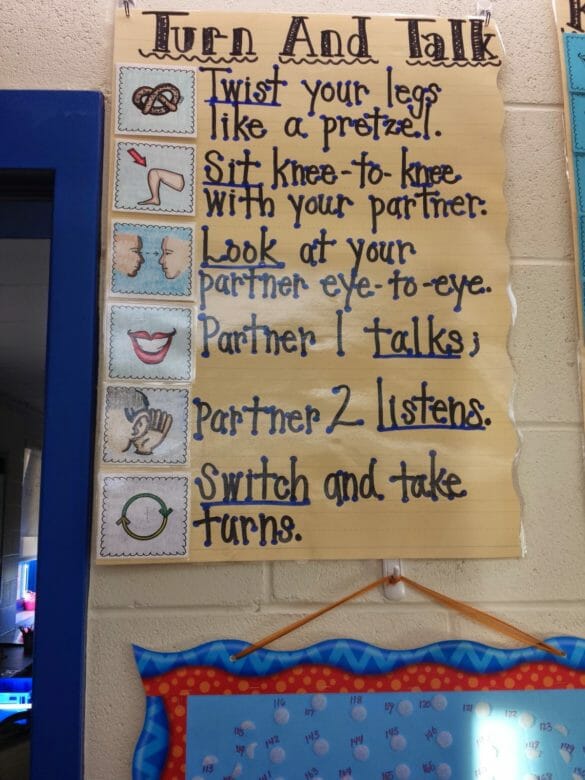 Turn And Talk
Twist your legs
like a pretzel.
Sit knee-to-knee
with your partner.
Look at your
partner eye-to-eye.
Partner 1 talks;
partner 2 listens.
Switch and take
turns.
116
118
120
122
123